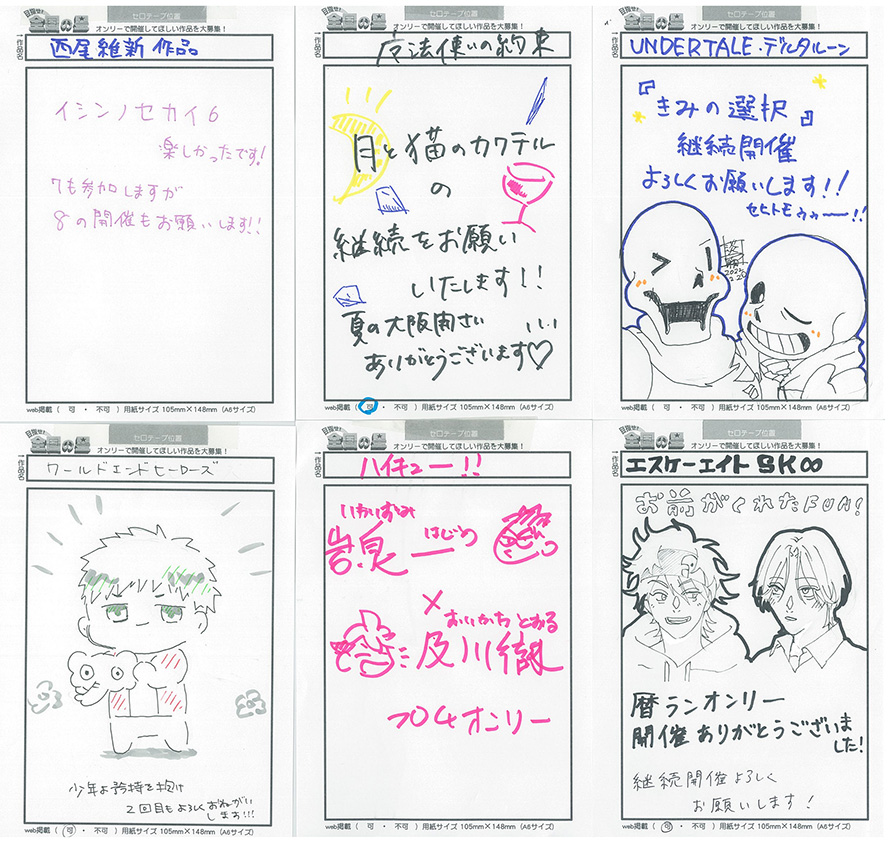 セロテープ位置
目指せ!
全国の巻
オンリーで開催してほしい作品を大募集!
作品名
西尾維新 作品
イシンノセカイ6
楽しかったです!
7も参加しますが
8の開催もお願いします!!
web掲載 ( 可 ・ 不可 ) 用紙サイズ 105mm×148mm (A6サイズ)
セロテープ位置
目指せ!
オンリーで開催してほしい作品を大募集!
作品名
魔法使いの約束
月と猫のカクテル
の
継続をお願い
いたします!!
夏の大阪開さい
ありがとうございます♡
web掲載 ( 可 ・ 不可 ) 用紙サイズ 105mm×148mm (A6サイズ)
セロテープ位置
目指せ!
オンリーで開催してほしい作品を大募集!
作品名
UNDERTALE・デルタルーン
『きみの選択』
継続開催
よろしくお願いします!!
web掲載 ( 可 ・ 不可 ) 用紙サイズ 105mm×148mm (A6サイズ)
セロテープ位置
目指せ!
オンリーで開催してほしい作品を大募集!
作品名
ワールドエンドヒーローズ
少年よ矜持を抱け
2回目もよろしくおねがい
します!!!
web掲載 ( 可 ・ 不可 ) 用紙サイズ 105mm×148mm (A6サイズ)
セロテープ位置
目指せ!
オンリーで開催してほしい作品を大募集!
作品名
ハイキュー!!
いわいずみ はじめ
岩泉一
×
おいかわ とおる
及川徹
プチオンリー
web掲載 ( 可 ・ 不可 ) 用紙サイズ 105mm×148mm (A6サイズ)
セロテープ位置
目指せ!
オンリーで開催してほしい作品を大募集!
作品名
エスケーエイト SK∞
お前がくれたFUN!
暦ランオンリー
開催ありがとうございま
した!
継続開催よろしく
お願いします!
web掲載 ( 可 ・ 不可 ) 用紙サイズ 105mm×148mm (A6サイズ)